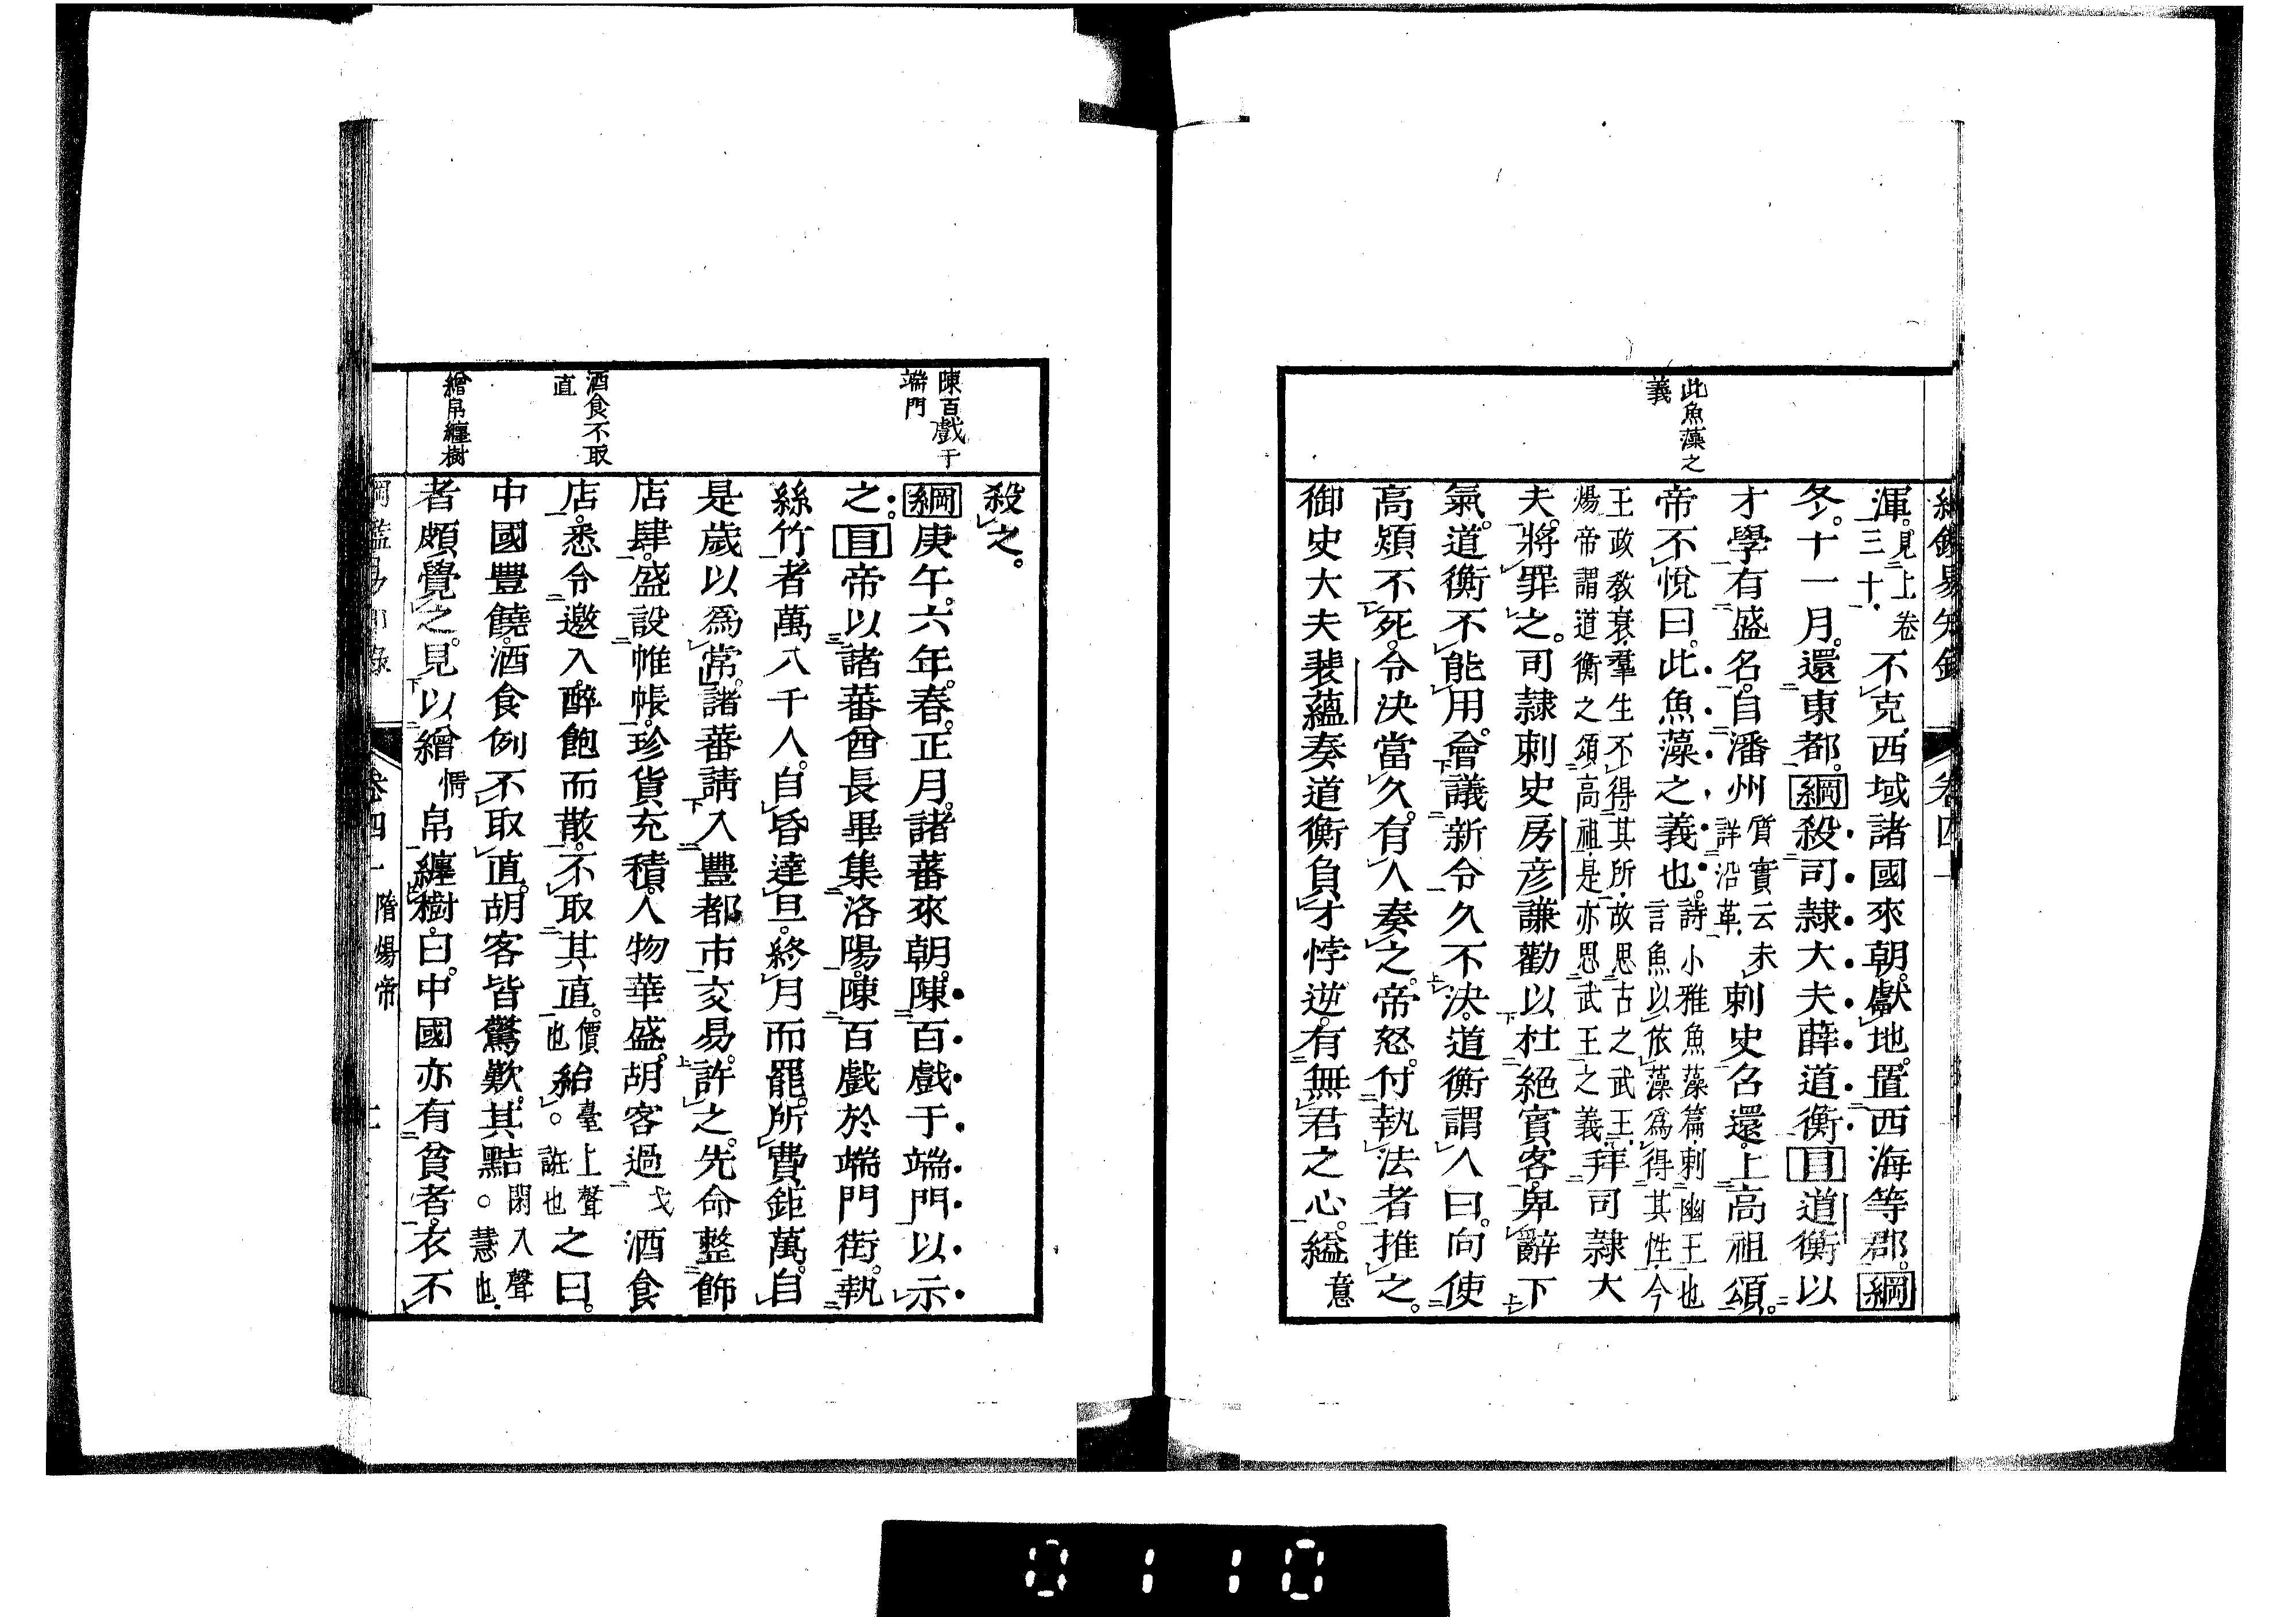 渾。見上卷三十。不克。西域諸國來朝。獻地。置西海等郡。綱
冬。十一月。還東都。綱殺司隸大夫薛道衡目道衡以
才學有盛名。自潘州質實云未詳沿革。刺史召還。上高祖頌。
此魚藻之
義
帝不悅曰。此魚藻之義也。詩小雅魚藻篇。刺幽王也言魚以依藻為得其性。今
王政教衰。羣生不得其所。故思古之武王。煬帝謂道衡之頌高祖。是亦思武王之義。拜司隸大
夫。將罪之。司隸刺史房彦謙勸以杜絕賓客。卑辭下
氣。道衡不能用。會議新令。久不決。道衡謂人曰。向使
高熲不死。令决當久。有人奏之。帝怒。付執法者推之。
御史大夫裴蘊奏道衡負才悖逆。有無君之心。縊意
殺之。
陳百戲于
端門
綱庚午。六年。春。正月。諸蕃來朝。陳百戲于端門以示
之。目帝以諸蕃酋長畢集洛陽。陳百戲於端門街。執
絲竹者萬八千人。自昏達旦。終月而罷。所費鉅萬。自
是歲以爲常。諸蕃請入豐都市交易。許之。先命整飾
店肆。盛設帷帳。珍貨充積。人物華盛。胡客過戈酒食
酒食不取
直
店。悉令邀入。醉飽而散。不取其直。價也紿臺上聲。誑也之曰。
中國豐饒。酒食例不取直。胡客皆驚歎。其黠閑入聲。慧也。
繒帛纏樹
者頗覺之。見以繒情帛纏樹。曰。中國亦有貧者。衣不
卷四一 隋煬帝